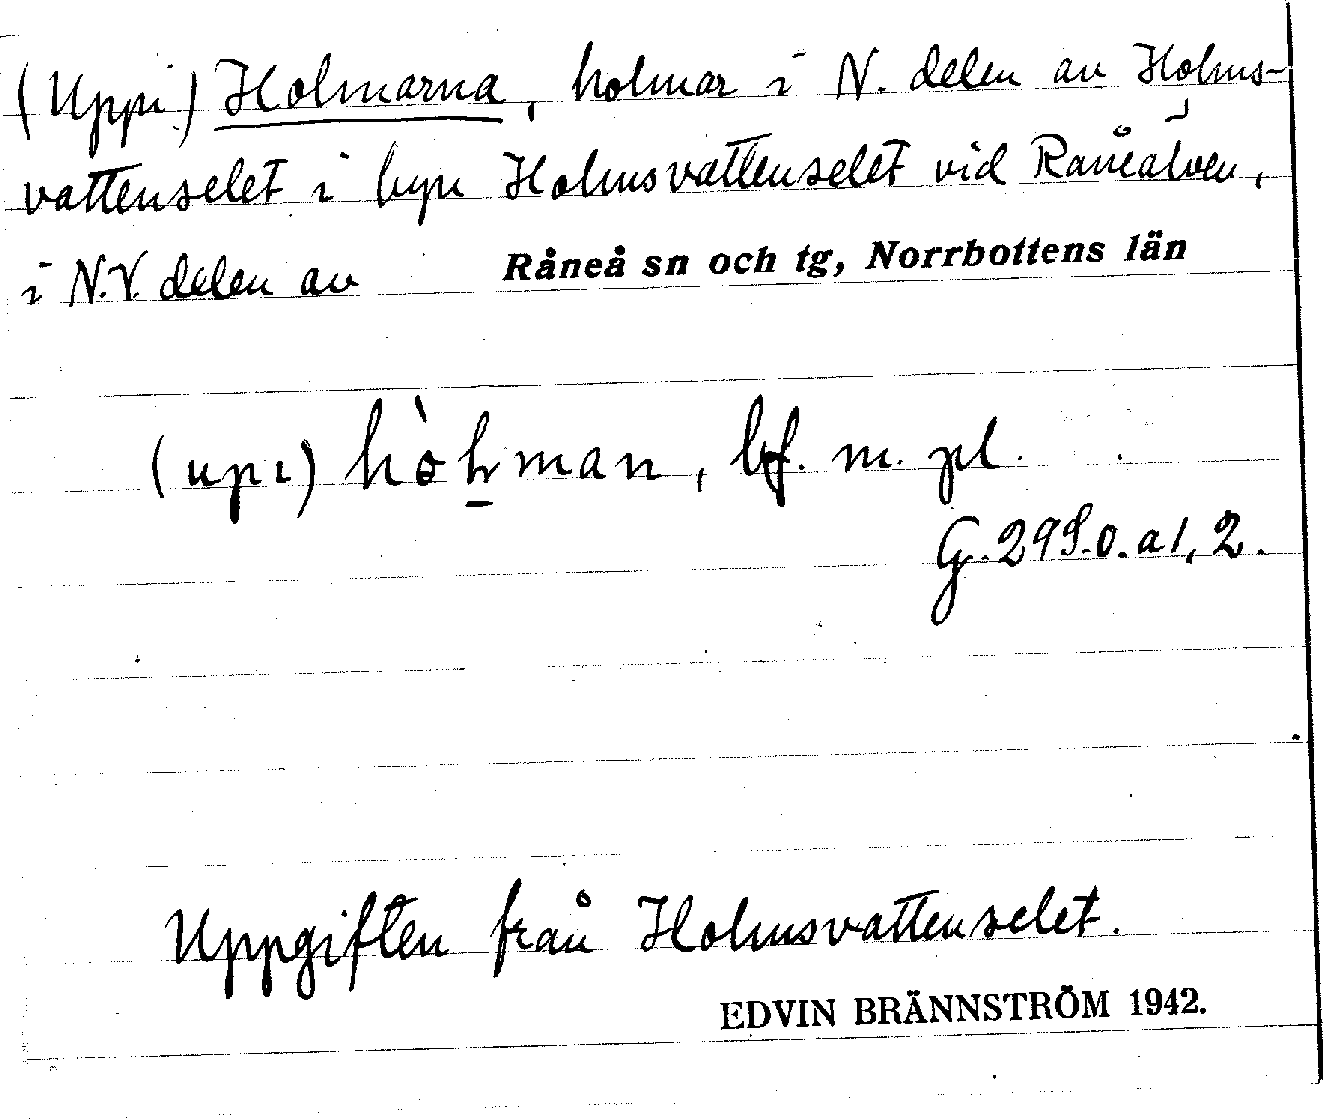 (Uppi) Holmarna, holmar i N. delen av Holms-
vattenselet i byn Holmsvattenselet vid Råneälven,
i N.V. delen av Råneå sn och tg, Norrbottens län
(upi) hòḻman, bf. m. pl.
G. 299.0. a 1, 2.
Uppgiften från Holmsvattenselet.
EDVIN BRÄNNSTRÖM 1942.